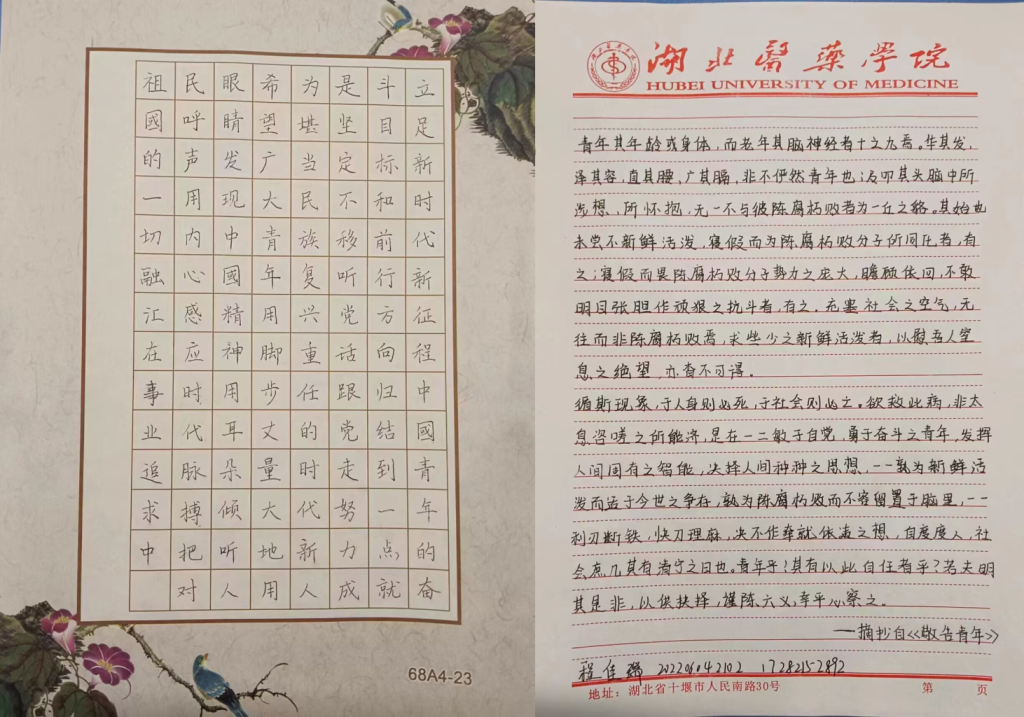 立足新时代新征程中國青年的奋
斗目标和前行方向归结到一点就
是坚定不移听党话跟党走努力成
为堪当民族复兴重任的时代新人
希望广大青年用脚步丈量大地用
眼睛发现中國精神用耳朵倾听人
民呼声用内心感应时代脉搏把对
祖國的一切融汇在事业追求中
68A4-23
湖北醫藥學院
HUBEI UNIVERSITY OF MEDICINE
青年其年龄或身体，而老年其脑神经者十之九焉。华其发，
泽其容，直其腰，广其膈，非不俨然青年也；及叩其头脑中所
涉想，所怀抱，无一不与彼陈腐朽败者为一丘之貉。其始也
未尝不新鲜活泼，寝假而为陈腐朽败分子所同化者，有
之；寝假而畏陈腐朽败分子势力之庞大，瞻顾依回，不敢
明目张胆作顽狠之抗斗者，有之。充塞社会之空气，无
往而非陈腐朽败焉，求些少之新鲜活泼者，以慰吾人窒
息之绝望，亦杳不可得。
循斯现象，于人身则必死，于社会则必亡。欲救此病，非太
息咨嗟之所能济，是在一二敏于自觉，勇于奋斗之青年，发挥
人间固有之智能，决择人间种种之思想，——孰为新鲜活
泼而适于今世之争存，孰为陈腐朽败而不容留置于脑里，——
利刃断铁，快刀理麻，决不作牵就依违之想，自度度人，社
会庶几其有清宁之日也。青年乎！其有以此自任者乎？若夫明
其是非，以供抉择，谨陈六义，幸平心察之。
——摘抄自《敬告青年》
程佳 17282152892
地址：湖北省十堰市人民南路30号 第 页